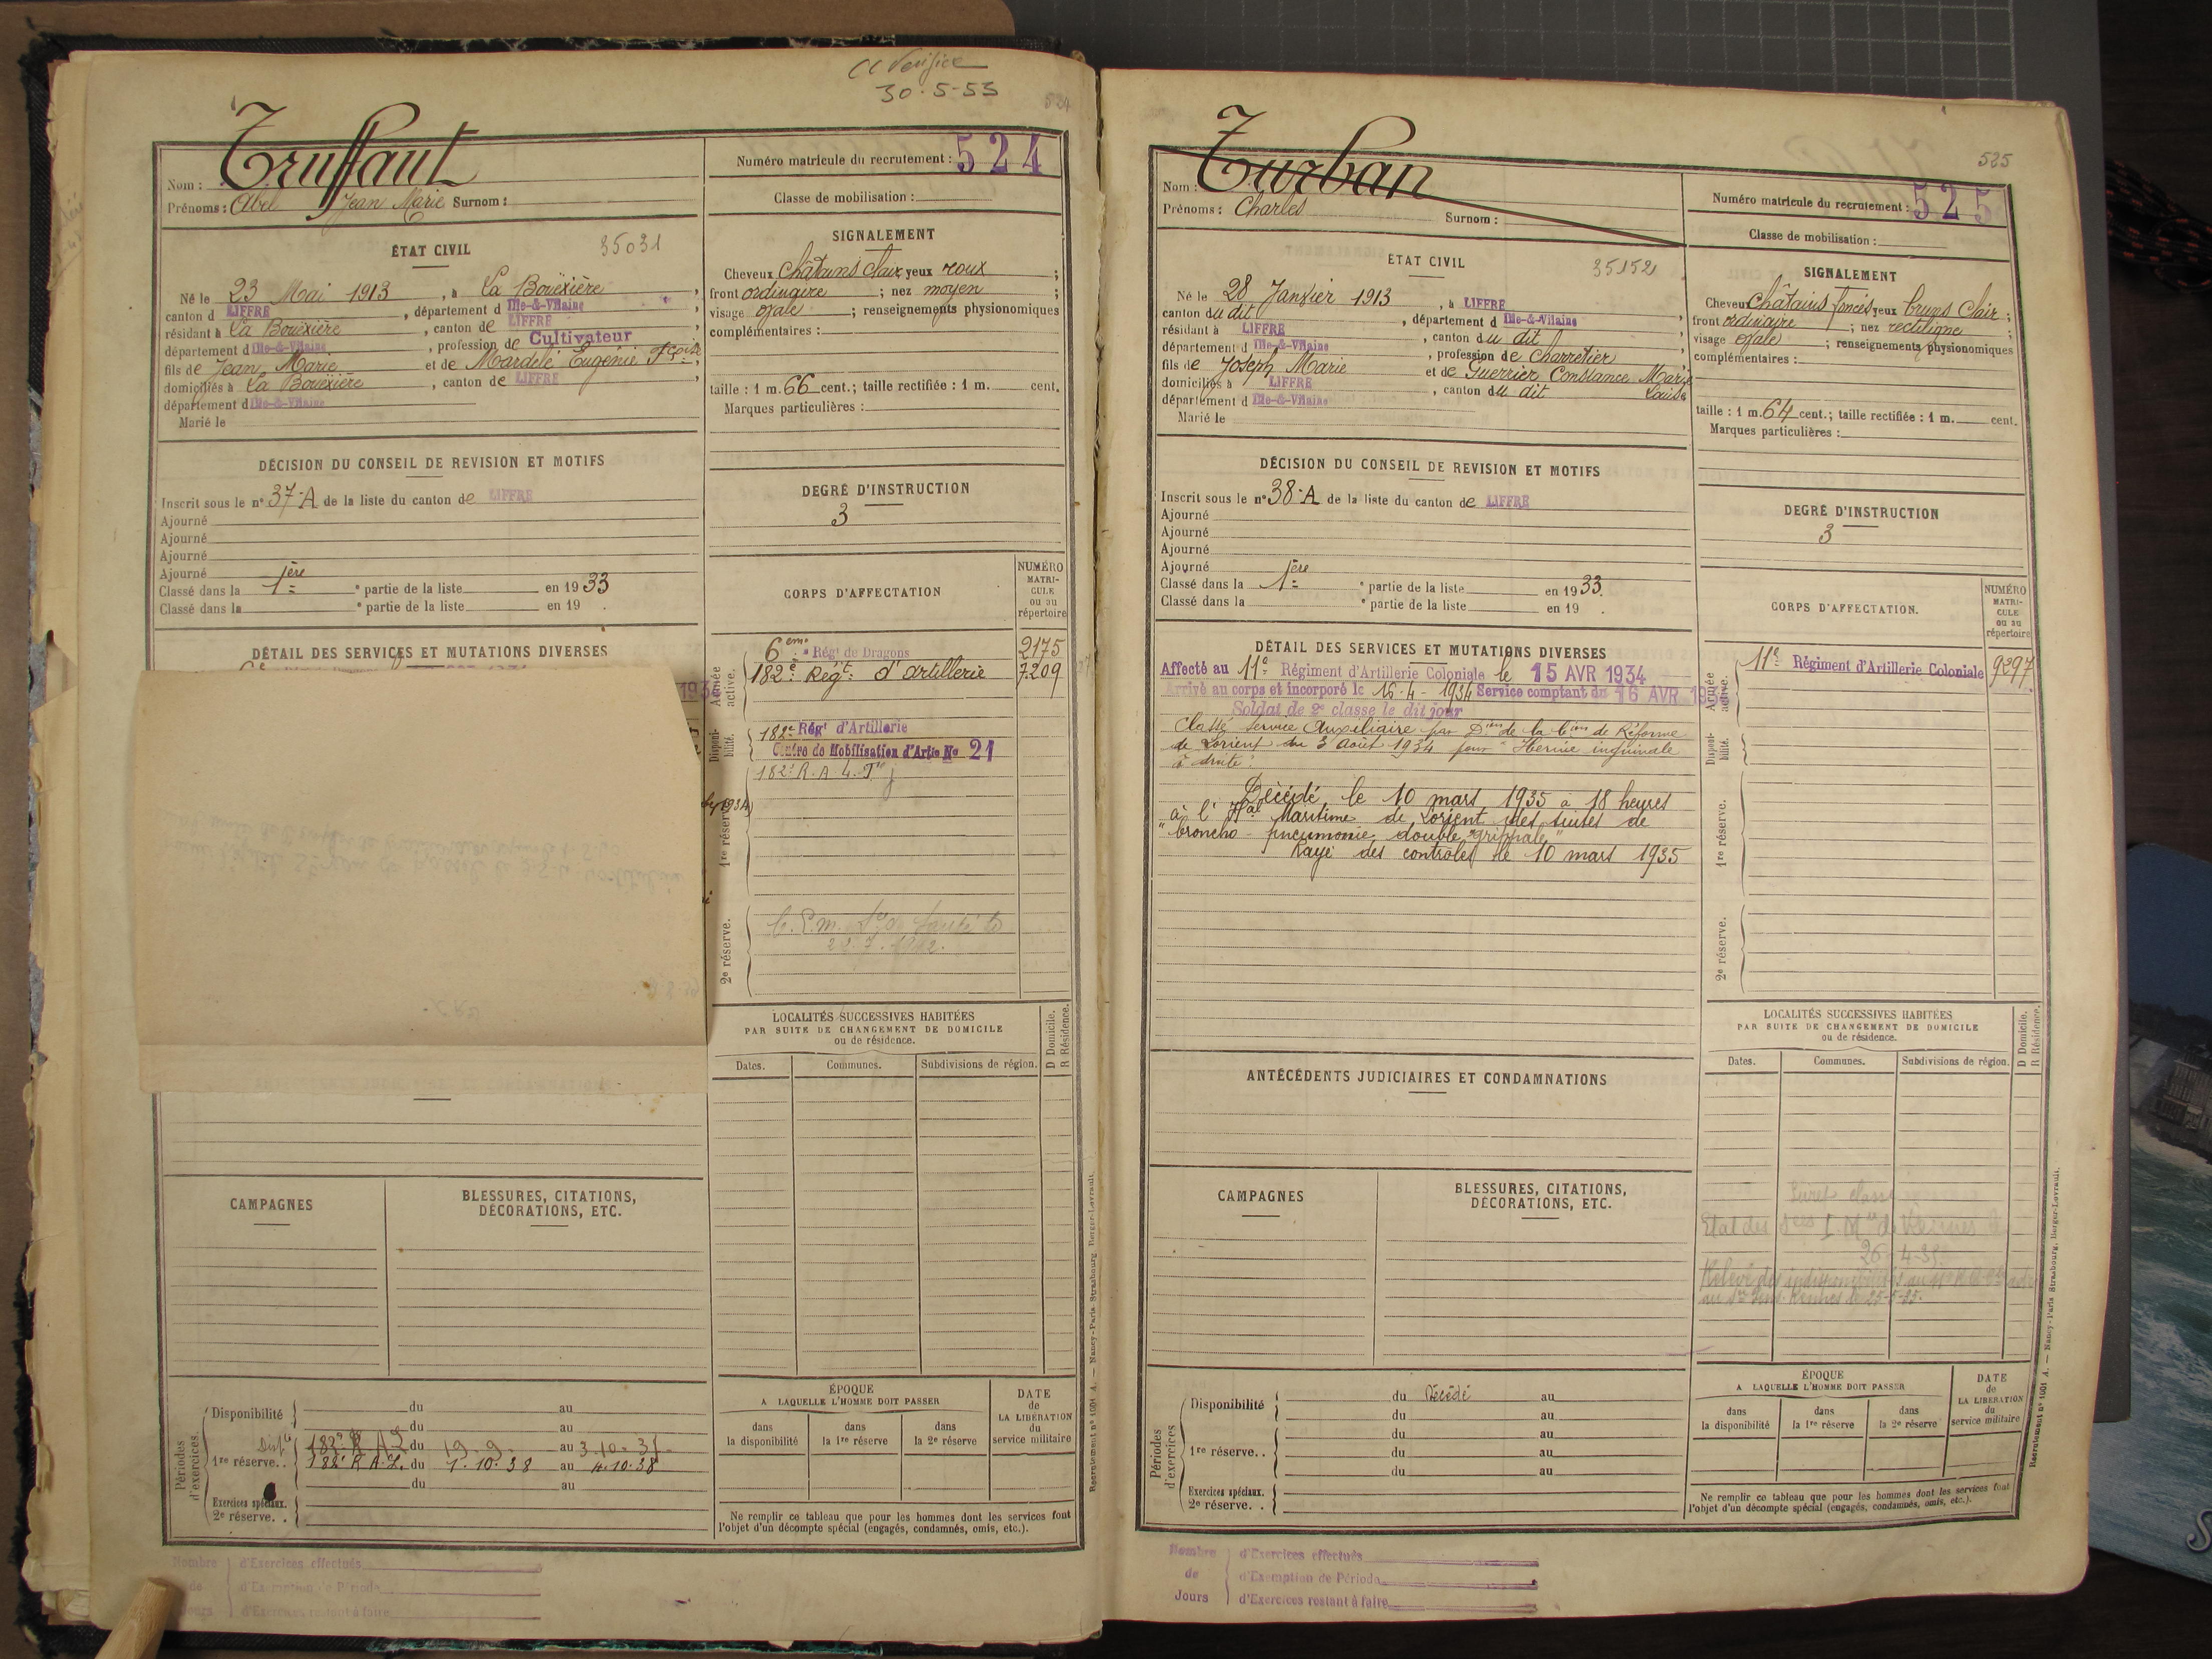 30-5-53
524
Truffaut
Nom :
Prénoms : Abel Jean Marie Surnom :
Numéro matricule du recrutement : 524
Classe de mobilisation :
ÉTAT CIVIL
35031
Né le 23 Mai 1913, à La Bouëxière,
canton d LIFFRE, département d Ille-&-Vilaine
résidant à La Bouëxière, canton de LIFFRE
département d Ille-&-Vilaine, profession de Cultivateur
fils de Jean Marie et de Mardelé Eugénie Fçoise
domiciliés à La Bouëxière, canton de LIFFRE
département d Ille-&-Vilaine
Marié le
SIGNALEMENT
Cheveux châtains clair yeux roux ;
front ordinaire ; nez moyen ;
visage ovale ; renseignements physionomiques
complémentaires :
taille : 1 m. 66 cent.; taille rectifiée : 1 m. cent.
Marques particulières :
DÉCISION DU CONSEIL DE REVISION ET MOTIFS
Inscrit sous le n° 37-A de la liste du canton de LIFFRE
Ajourné
Ajourné
Ajourné
Ajourné
Classé dans la 1ère partie de la liste en 1933
Classé dans la e partie de la liste en 19 .
DEGRÉ D'INSTRUCTION
3
DÉTAIL DES SERVICES ET MUTATIONS DIVERSES
CORPS D'AFFECTATION
NUMÉRO
MATRI-
CULE
ou au
répertoire
Armée active.
6eme Régt de Dragons 2175
182e Régt d'artillerie 7209
Disponibilité.
182e Régt d'Artillerie
Centre de Mobilisation d'Artie No 21
1re réserve.
182e R.A.L.T.
2e réserve.
LOCALITÉS SUCCESSIVES HABITÉES
PAR SUITE DE CHANGEMENT DE DOMICILE
ou de résidence.
Dates. Communes. Subdivisions de région.
D Domicile.
R Résidence.
CAMPAGNES
BLESSURES, CITATIONS,
DÉCORATIONS, ETC.
Périodes d'exercices.
Disponibilité du au
du au
Dispté 182e R.A.L du 19-9- au 3-10-3
1re réserve.. 182e R.A.L. du 7.10.38 au 4.10.38
du au
Exercices spéciaux.
2e réserve. .
ÉPOQUE
A LAQUELLE L'HOMME DOIT PASSER
dans la disponibilité
dans la 1re réserve
dans la 2e réserve
DATE
de
LA LIBÉRATION
du
service militaire
Ne remplir ce tableau que pour les hommes dont les services font
l'objet d'un décompte spécial (engagés, condamnés, omis, etc.).
Recrutement n° 1001 A. — Nancy-Paris-Strasbourg. Berger-Levrault.
Nombre de Jours
d'Exercices effectués
d'Exemption de Période
d'Exercices restant à faire
525
Turban
Nom :
Prénoms : Charles Surnom :
Numéro matricule du recrutement : 525
Classe de mobilisation :
ÉTAT CIVIL
35152
Né le 28 Janvier 1913, à LIFFRE
canton du dit, département d Ille-&-Vilaine
résidant à LIFFRE, canton du dit
département d Ille-&-Vilaine, profession de Charretier
fils de Joseph Marie et de Guerrier Constance Marie
Louise
domiciliés à LIFFRE, canton du dit
département d Ille-&-Vilaine
Marié le
SIGNALEMENT
Cheveux châtains foncés yeux bruns clair ;
front ordinaire ; nez rectiligne ;
visage ovale ; renseignements physionomiques
complémentaires :
taille : 1 m. 64 cent.; taille rectifiée : 1 m. cent.
Marques particulières :
DÉCISION DU CONSEIL DE REVISION ET MOTIFS
Inscrit sous le n° 38-A de la liste du canton de LIFFRE
Ajourné
Ajourné
Ajourné
Ajourné
Classé dans la 1ère partie de la liste en 1933.
Classé dans la e partie de la liste en 19 .
DEGRÉ D'INSTRUCTION
3
DÉTAIL DES SERVICES ET MUTATIONS DIVERSES
Affecté au 11e Régiment d'Artillerie Coloniale le 15 AVR 1934
Arrivé au corps et incorporé le 16-4-1934 Service comptant du 16 AVR 193
Soldat de 2e classe le dit jour
Classé Service Auxiliaire par Don de la Con de Réforme
de Lorient du 3 août 1934 pour "Hernie inguinale
à droite".
Décédé le 10 mars 1935 à 18 heures
à l'Hal Maritime de Lorient des suites de
"broncho-pneumonie double grippale"
Rayé des contrôles le 10 mars 1935
CORPS D'AFFECTATION.
NUMÉRO
MATRI-
CULE
ou au
répertoire
Armée active.
11e Régiment d'Artillerie Coloniale 9297
Disponibilité.
1re réserve.
2e réserve.
ANTÉCÉDENTS JUDICIAIRES ET CONDAMNATIONS
LOCALITÉS SUCCESSIVES HABITÉES
PAR SUITE DE CHANGEMENT DE DOMICILE
ou de résidence.
Dates. Communes. Subdivisions de région.
D Domicile.
R Résidence.
CAMPAGNES
BLESSURES, CITATIONS,
DÉCORATIONS, ETC.
Périodes d'exercices
Disponibilité du Décédé au
du au
du au
1re réserve.. du au
du au
Exercices spéciaux.
2e réserve. .
ÉPOQUE
A LAQUELLE L'HOMME DOIT PASSER
dans la disponibilité
dans la 1re réserve
dans la 2e réserve
DATE
de
LA LIBÉRATION
du
service militaire
Ne remplir ce tableau que pour les hommes dont les services font
l'objet d'un décompte spécial (engagés, condamnés, omis, etc.).
Recrutement n° 1001 A. — Nancy-Paris-Strasbourg. Berger-Levrault.
Nombre de Jours
d'Exercices effectués
d'Exemption de Période
d'Exercices restant à faire